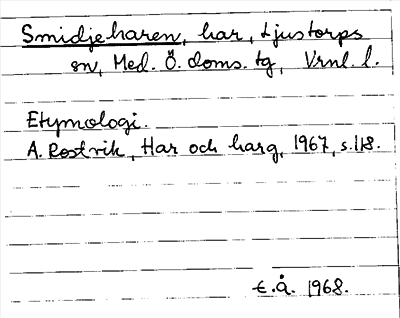 Smidjeharen, har, Ljustorps
sn, Med. Ö. doms. tg, Vrnl. l.
Etymologi.
A. Rostvik, Har och harg, 1967, s. 118.
E.Å. 1968.